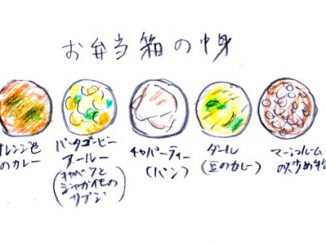 お弁当箱の中身
オレンジ色
のカレー
パタゴービー
アールー
(キャベツと
ジャガイモの
サブジ)
チャパーティー
(パン)
ダール
(豆のカレー)
マッシュルーム
の炒め物